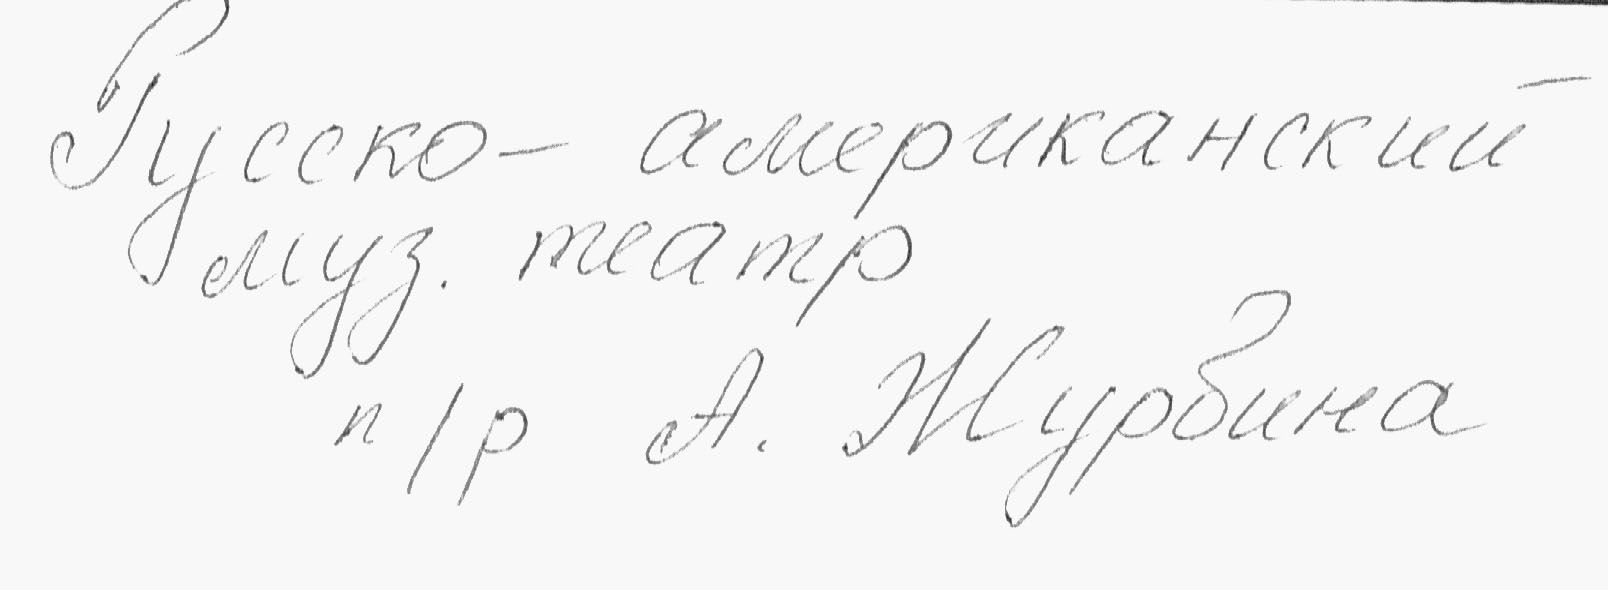 Русско-американский
муз. театр
п/р А. Журбина